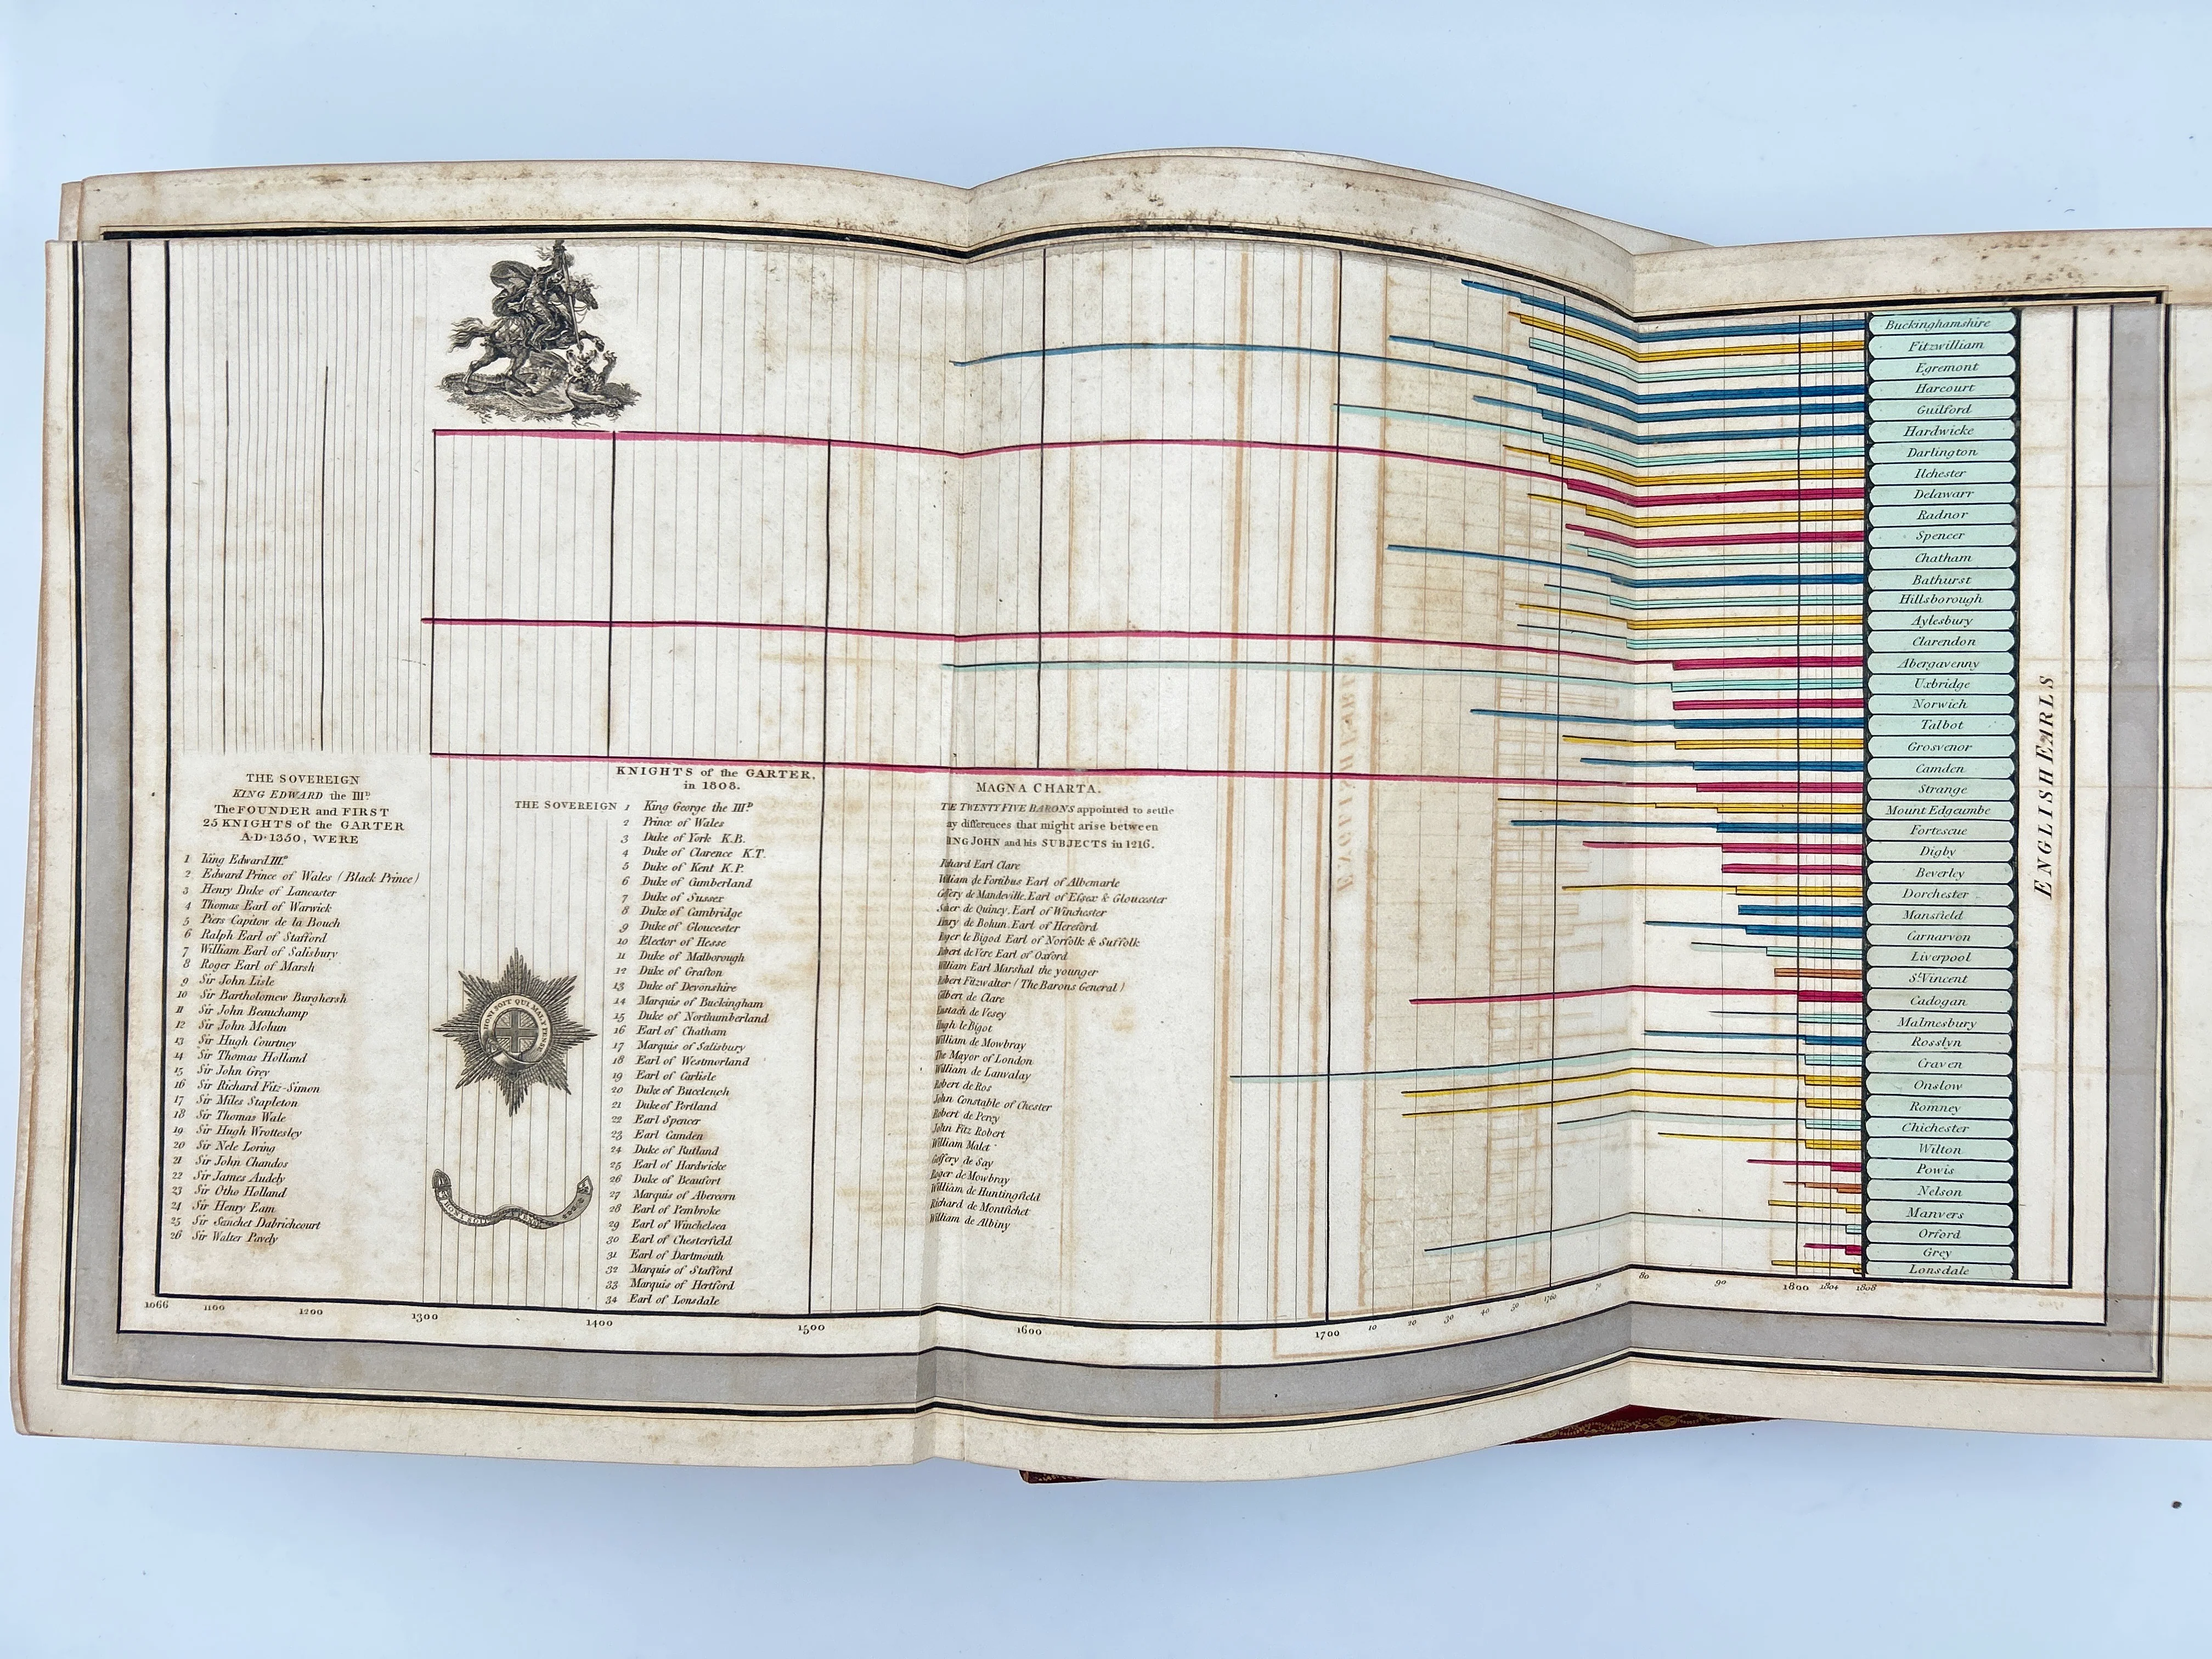 THE SOVEREIGN
KING EDWARD the IIIᴰ
The FOUNDER and FIRST
25 KNIGHTS of the GARTER
A.D. 1350, WERE
1 King Edward III.ᵈ
2 Edward Prince of Wales (Black Prince)
3 Henry Duke of Lancaster
4 Thomas Earl of Warwick
5 Piers Capitow de la Bouch
6 Ralph Earl of Stafford
7 William Earl of Salisbury
8 Roger Earl of Marsh
9 Sir John Lisle
10 Sir Bartholomew Burghersh
11 Sir John Beauchamp
12 Sir John Mohun
13 Sir Hugh Courtney
14 Sir Thomas Holland
15 Sir John Grey
16 Sir Richard Fitz-Simon
17 Sir Miles Stapleton
18 Sir Thomas Wale
19 Sir Hugh Wrottesley
20 Sir Nele Loring
21 Sir John Chandos
22 Sir James Audely
23 Sir Otho Holland
24 Sir Henry Eam
25 Sir Senchet Dabrichcourt
26 Sir Walter Pavely
HONI SOIT QUI MAL Y PENSE
KNIGHTS of the GARTER,
in 1808.
THE SOVEREIGN 1 King George the IIIᴰ
2 Prince of Wales
3 Duke of York K.B.
4 Duke of Clarence K.T.
5 Duke of Kent K.P.
6 Duke of Cumberland
7 Duke of Sussex
8 Duke of Cambridge
9 Duke of Gloucester
10 Elector of Hesse
11 Duke of Malborough
12 Duke of Grafton
13 Duke of Devonshire
14 Marquis of Buckingham
15 Duke of Northumberland
16 Earl of Chatham
17 Marquis of Salisbury
18 Earl of Westmorland
19 Earl of Carlisle
20 Duke of Buccleugh
21 Duke of Portland
22 Earl Spencer
23 Earl Camden
24 Duke of Rutland
25 Earl of Hardwicke
26 Duke of Beaufort
27 Marquis of Abercorn
28 Earl of Pembroke
29 Earl of Winchelsea
30 Earl of Chesterfield
31 Earl of Dartmouth
32 Marquis of Stafford
33 Marquis of Hertford
34 Earl of Lonsdale
MAGNA CHARTA.
TWENTY FIVE BARONS appointed to settle
differences that might arise between
JOHN and his SUBJECTS in 1216.
Earl Clare
William de Fortibus Earl of Albemarle
de Mandeville, Earl of Essex & Gloucester
de Quincy, Earl of Winchester
de Bohun, Earl of Hereford
le Bigod Earl of Norfolk & Suffolk
de Vere Earl of Oxford
William Earl Marshal the younger
Robert Fitzwalter (The Barons General)
Gilbert de Clare
Eustach de Vesey
Hugh le Bigot
William de Mowbray
The Mayor of London
William de Lanvalay
Robert de Ros
John Constable of Chester
Robert de Percy
John Fitz Robert
William Malet
de Say
Roger de Mowbray
William de Huntingfield
Richard de Montfichet
William de Albiny
Buckinghamshire
Fitzwilliam
Egremont
Harcourt
Guilford
Hardwicke
Darlington
Ilchester
Delawarr
Radnor
Spencer
Chatham
Bathurst
Hillsborough
Aylesbury
Clarendon
Abergavenny
Uxbridge
Norwich
Talbot
Grosvenor
Camden
Strange
Mount Edgcumbe
Fortescue
Digby
Beverley
Dorchester
Mansfield
Carnarvon
Liverpool
Sᵗ Vincent
Cadogan
Malmesbury
Rosslyn
Craven
Onslow
Romney
Chichester
Wilton
Powis
Nelson
Manvers
Orford
Grey
Lonsdale
ENGLISH EARLS
1066 1100 1200 1300 1400 1500 1600 1700 10 20 30 40 50 1760 70 80 90 1800 1804 1808